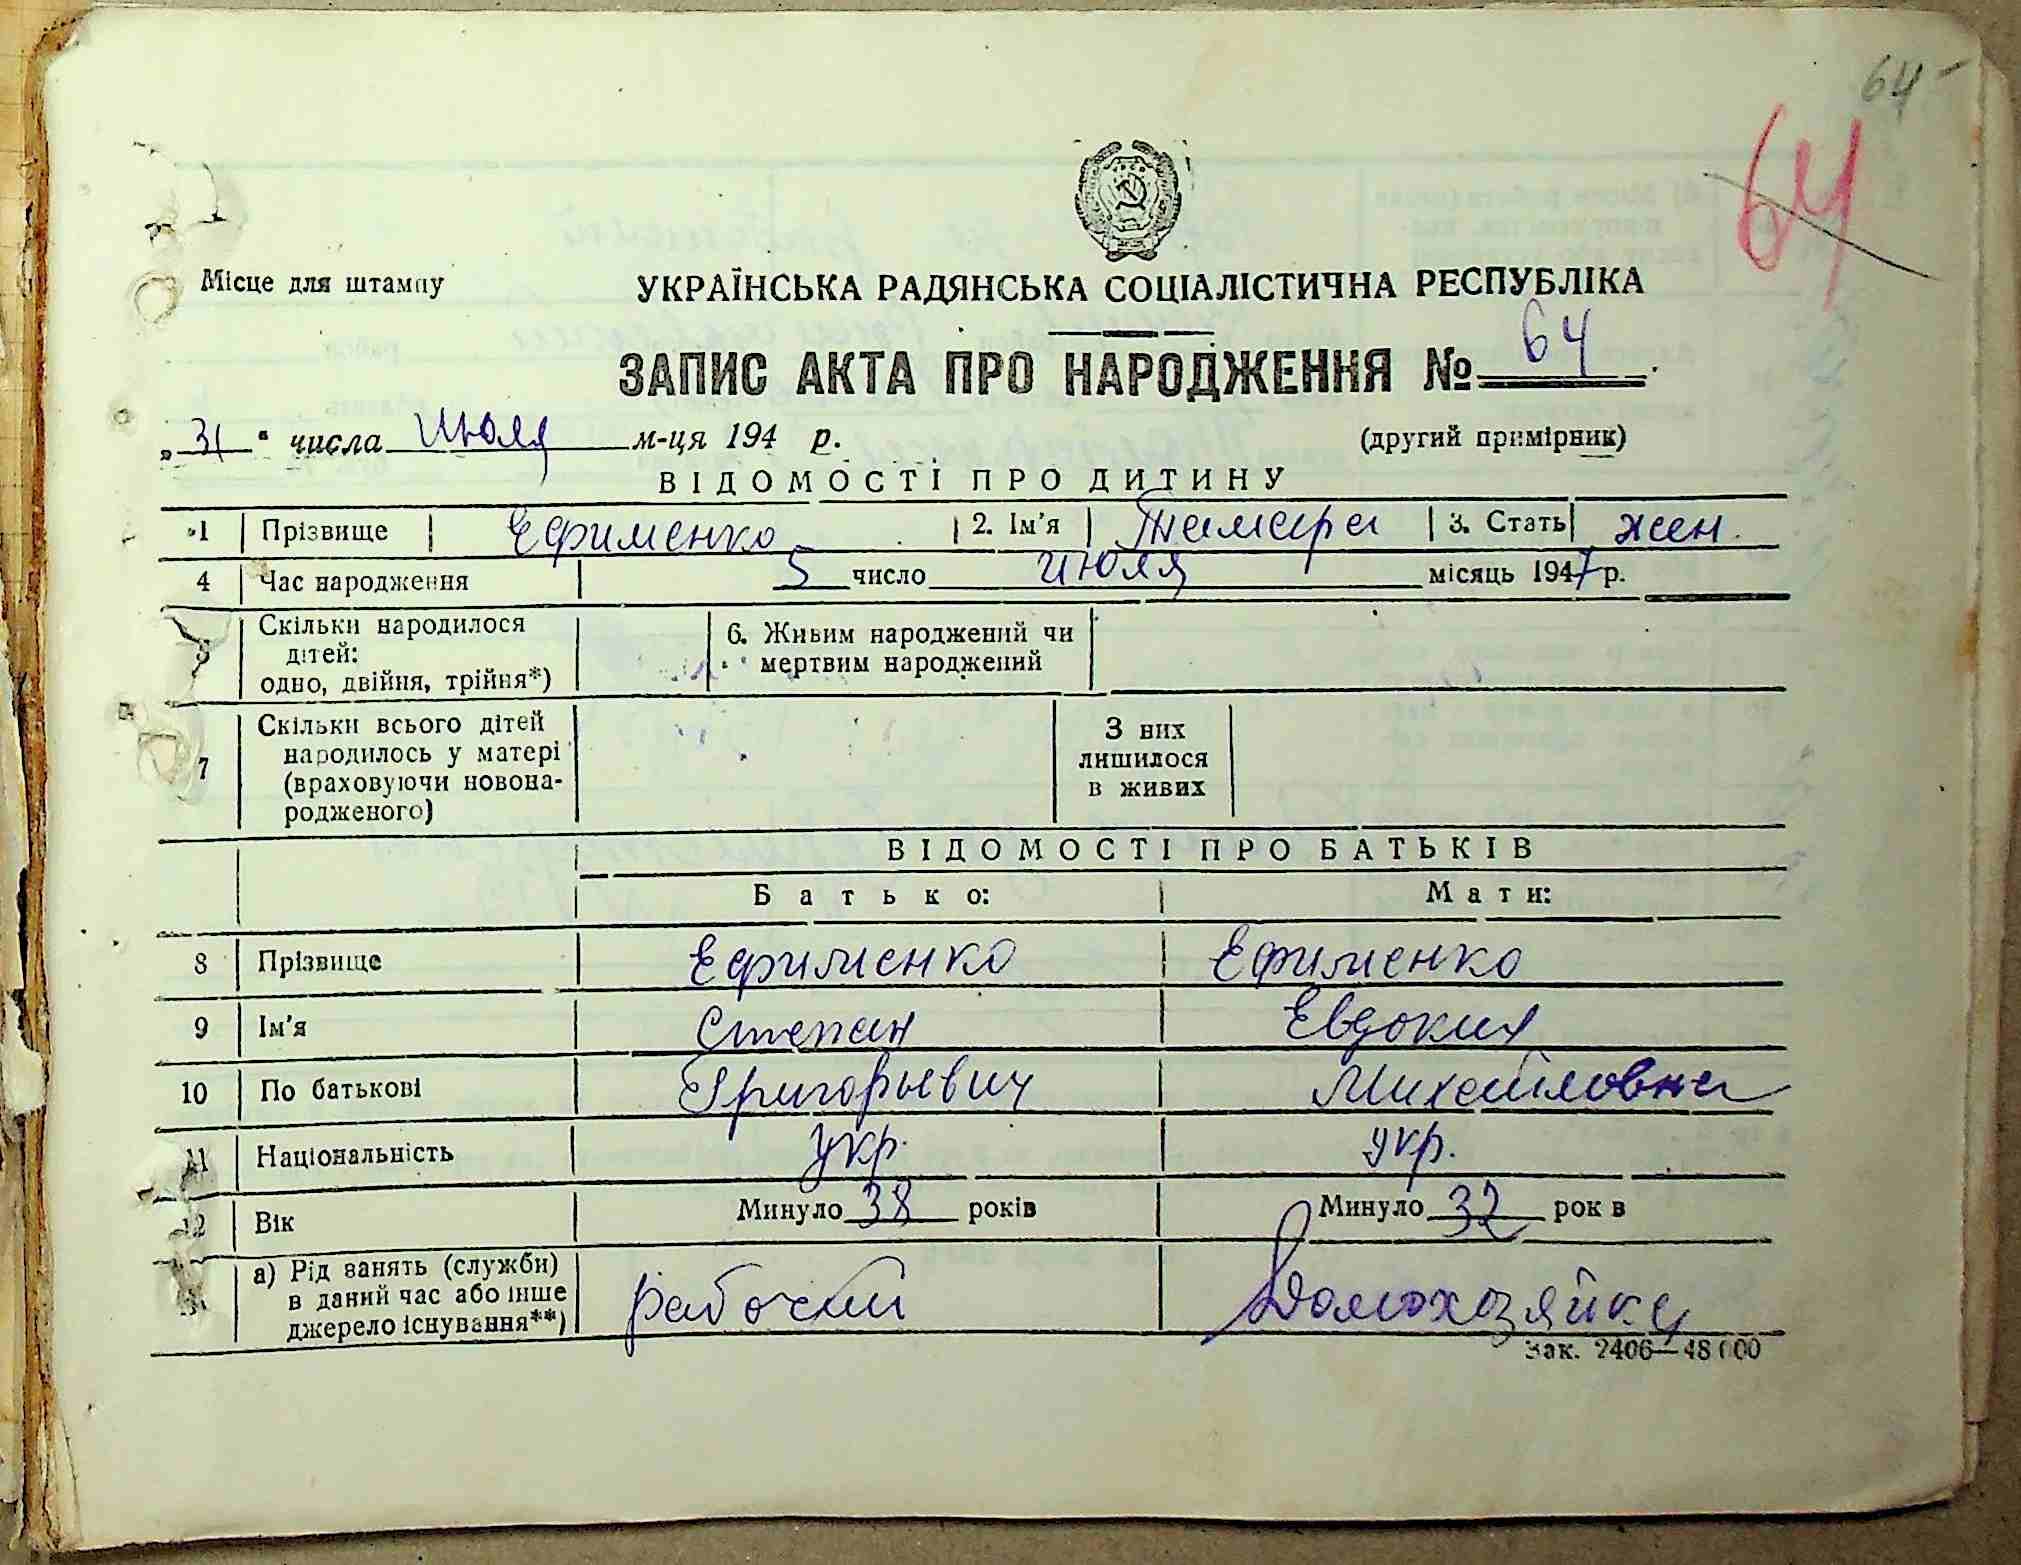 64
64
Місце для штампу
УКРАЇНСЬКА РАДЯНСЬКА СОЦІАЛІСТИЧНА РЕСПУБЛІКА
ЗАПИС АКТА ПРО НАРОДЖЕННЯ № 64
„31“ числа Июля м-ця 194 р. (другий примірник)
ВІДОМОСТІ ПРО ДИТИНУ
1 Прізвище Ефименко 2. Ім'я Тамара 3. Стать жен.
4 Час народження 5 число Июля місяць 1947 р.
5 Скільки народилося дітей: одно, двійня, трійня*) 6. Живим народжений чи мертвим народжений
7 Скільки всього дітей народилось у матері (враховуючи новонародженого) З них лишилося в живих
ВІДОМОСТІ ПРО БАТЬКІВ
Батько: Мати:
8 Прізвище Ефименко Ефименко
9 Ім'я Степан Евдокия
10 По батькові Григорьевич Михайловна
11 Національність Укр. укр.
12 Вік Минуло 38 років Минуло 32 рок в
а) Рід занять (служби) в даний час або інше джерело існування**) рабочий Домохозяйка
Зак. 2406—48000